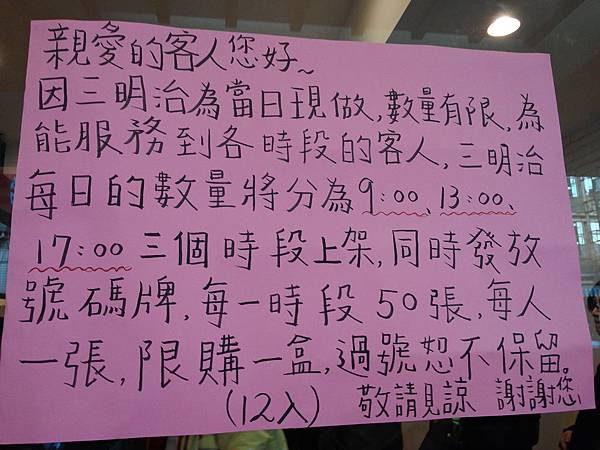 親愛的客人您好~
因三明治為當日現做,數量有限,為
能服務到各時段的客人,三明治
每日的數量將分為9:00、13:00、
17:00三個時段上架,同時發放
號碼牌,每一時段50張,每人
一張,限購一盒,過號恕不保留。
(12入) 敬請見諒 謝謝您